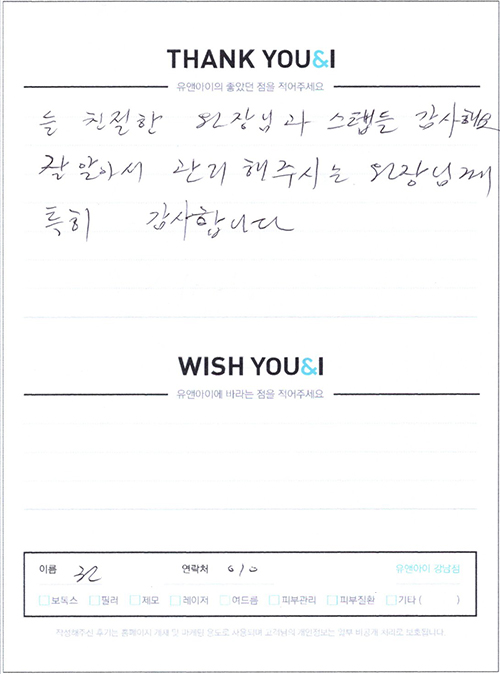 THANK YOU&I
유앤아이의 좋았던 점을 적어주세요
늘 친절한 원장님과 스탭들 감사해요
잘 알아서 관리 해주시는 원장님께
특히 감사합니다
WISH YOU&I
유앤아이에 바라는 점을 적어주세요
이름 연락처 010 유앤아이 강남점
보톡스 필러 제모 레이저 여드름 피부관리 피부질환 기타 ( )
작성해주신 후기는 홈페이지 게재 및 마케팅 용도로 사용되며 고객님의 개인정보는 일부 비공개 처리로 보호됩니다